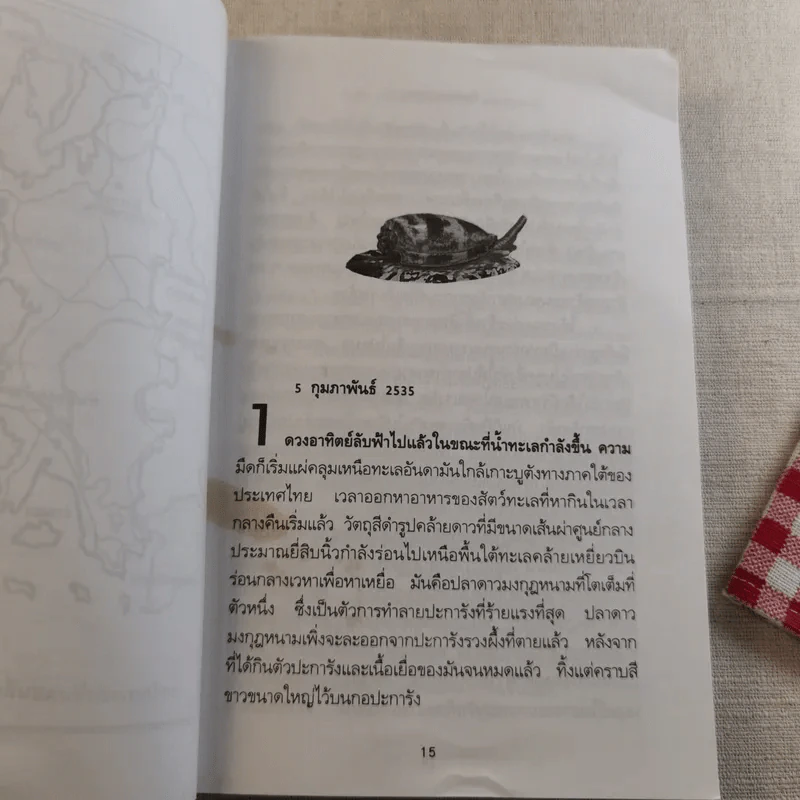 5 กุมภาพันธ์ 2535
1 ดวงอาทิตย์ลับฟ้าไปแล้วในขณะที่น้ำทะเลกำลังขึ้น ความ
มืดก็เริ่มแผ่คลุมเหนือทะเลอันดามันใกล้เกาะบูตังทางภาคใต้ของ
ประเทศไทย เวลาออกหาอาหารของสัตว์ทะเลที่หากินในเวลา
กลางคืนเริ่มแล้ว วัตถุสีดำรูปคล้ายดาวที่มีขนาดเส้นผ่าศูนย์กลาง
ประมาณยี่สิบนิ้วกำลังร่อนไปเหนือพื้นใต้ทะเลคล้ายเหยี่ยวบิน
ร่อนกลางเวหาเพื่อหาเหยื่อ มันคือปลาดาวมงกุฎหนามที่โตเต็มที่
ตัวหนึ่ง ซึ่งเป็นตัวการทำลายปะการังที่ร้ายแรงที่สุด ปลาดาว
มงกุฎหนามเพิ่งจะละออกจากปะการังรวงผึ้งที่ตายแล้ว หลังจาก
ที่ได้กินตัวปะการังและเนื้อเยื่อของมันจนหมดแล้ว ทิ้งแต่คราบสี
ขาวขนาดใหญ่ไว้บนกอปะการัง
15